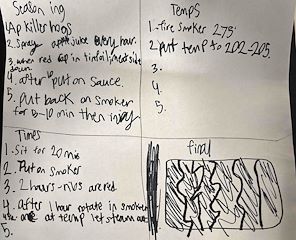 Seasoning
AP killer hogs
2. Spray apple juice every hour.
3. when red in tinfoil
down.
4. after put on sauce.
5. Put back on smoker
for 5-10 min then enjoy
Temps
1. fire smoker 275
2. put temp to 202-205.
3.
4.
5.
Times
1. Sit for 20 min
2. Put on smoker
3. 2 hours - ribs are red
4. after 1 hour rotate in smoker
at temp let steam out
5.
final